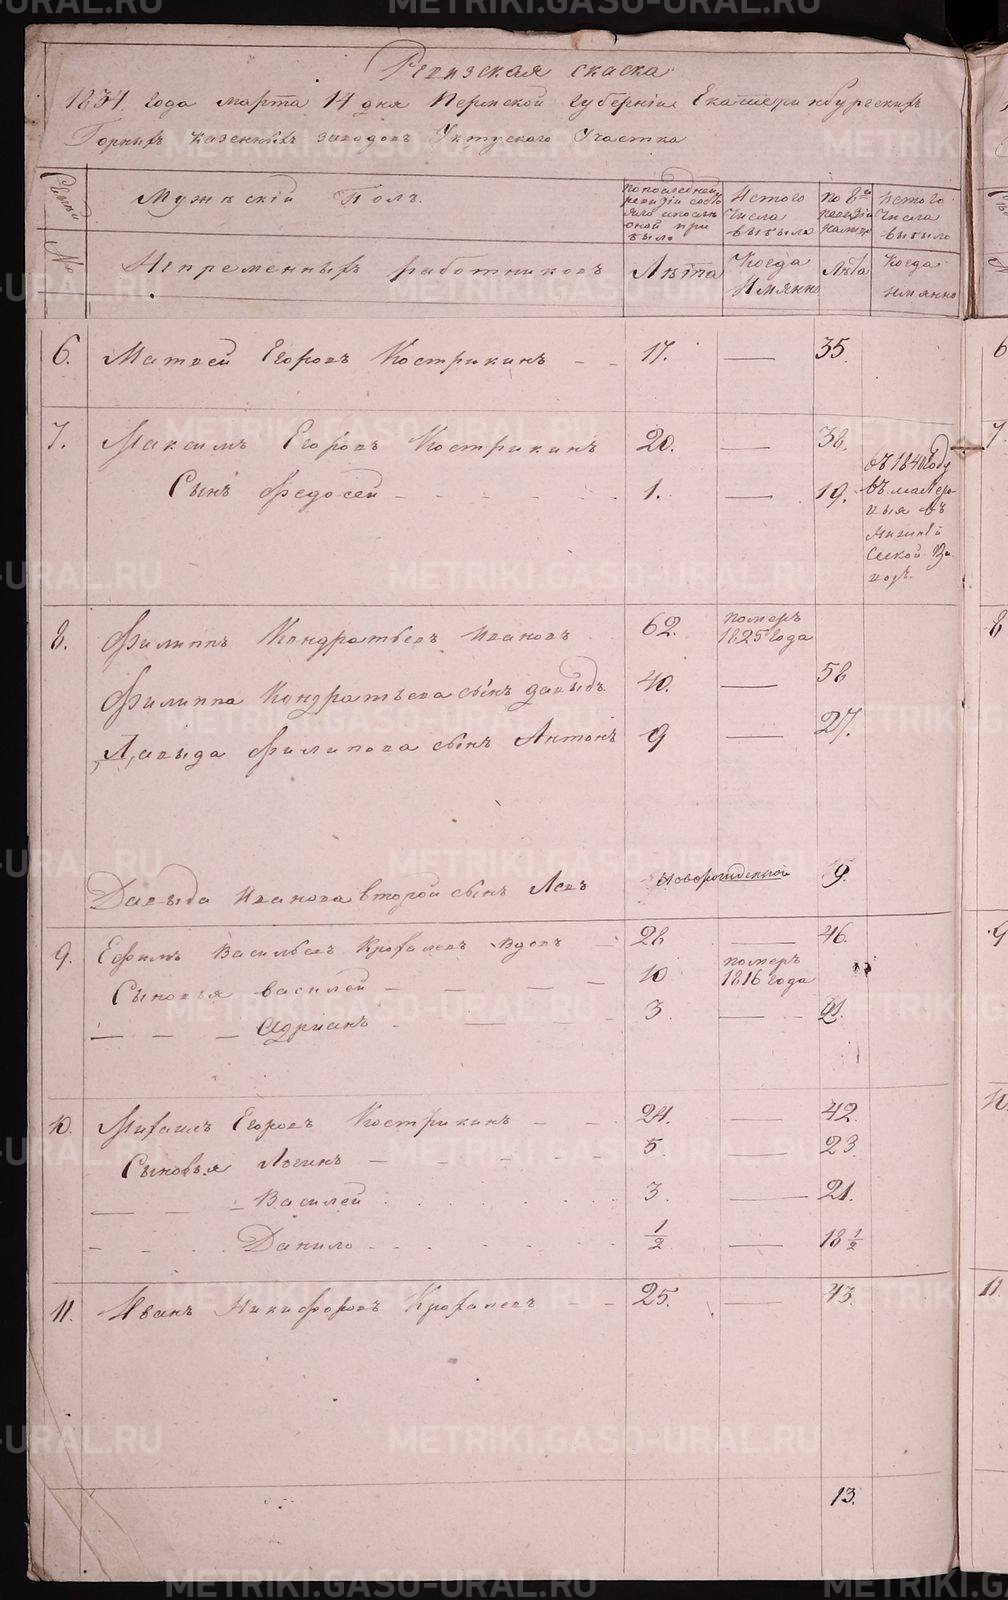 Ревизская скаска
1834 года марта 14 дня Пермской губернiи Екатеринбургскихъ
Горныхъ казенныхъ заводовъ Уктуского Участка
Семьи
№
Мужескiй Полъ
Непременныхъ работниковъ
по последней ревизiи состояло и после оной прибыло
Лѣта
Истого числа выбыло
Когда Имянно
по 8й ревизiи налицо
Лѣта
истого числа выбыло
Когда имянно
6. Матвей Егоровъ Кострикинъ - - 17. — 35.
7. Максимъ Егоровъ Кострикинъ 20. — 38.
Сынъ Федосей - - - - 1. — 19.
въ 1840 году
въ
въ
8. Филиппъ Кондратьевъ Ивановъ 62. померъ 1825 года
Филиппа Кондратьева сынъ давыдъ 40. — 58
Давыда Филипова сынъ Антонъ 9 — 27.
Давыда Иванова второй сынъ Левъ новорожденной 9.
9. Ефимъ Васильевъ Крохалевъ вдовъ — 28 — 46.
Сыновья василей - - - - 10 померъ 1816 года
— — — Адрианъ - - - 3 — 21.
10. Михаилъ Егоровъ Кострикинъ - - 24. — 42.
Сыновья Логинъ - - - - 5 — 23.
— — — Василей 3. — 21.
- - - Данило - - - 1/2. — 18 1/2
11. Иванъ Никифоровъ Крохалевъ - - 25. — 43.
13.
METRIKI.GASO-URAL.RU